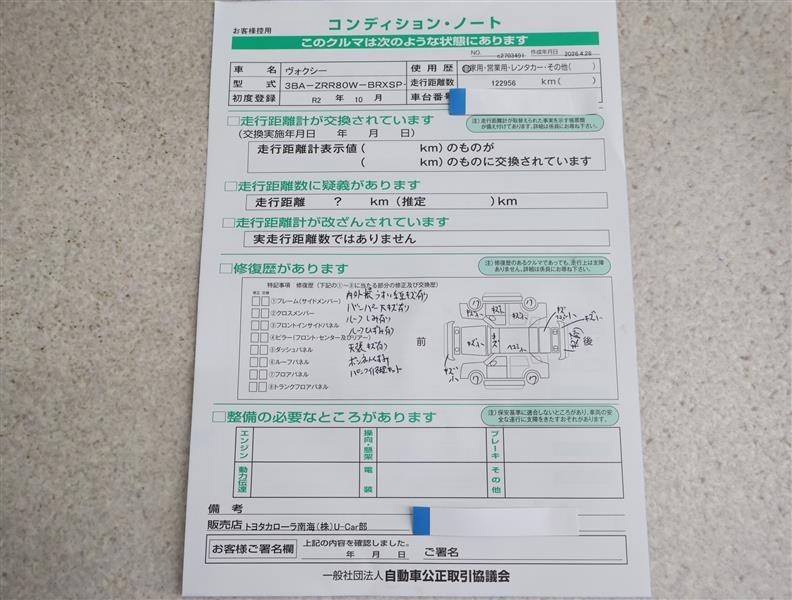 お客様控用
コンディション・ノート
このクルマは次のような状態にあります
NO. c2703491 作成年月日 2026.4.26
車名 ヴォクシー 使用歴 自家用・営業用・レンタカー・その他( )
型式 3BA-ZRR80W-BRXSP- 走行距離数 122956 km( )
初度登録 R2 年 10 月 車台番号
□走行距離計が交換されています
注)走行距離計が取替えられた事実を示す帳票類が備え付けてあります。詳細は係員にお尋ね下さい。
(交換実施年月日 年 月 日)
走行距離計表示値( km)のものが
( km)のものに交換されています
□走行距離数に疑義があります
走行距離 ? km(推定 )km
□走行距離計が改ざんされています
実走行距離数ではありません
□修復歴があります
注)修復歴のあるクルマであっても、走行上は支障ありません。詳細は係員にお尋ね下さい。
特記事項 修復歴(下記の①~⑧に当たる部分の修正及び交換歴)
修正 交換
①フレーム(サイドメンバー)
②クロスメンバー
③フロントインサイドパネル
④ピラー(フロント・センター及びリアー)
⑤ダッシュパネル
⑥ルーフパネル
⑦フロアパネル
⑧トランクフロアパネル
バンパー大キズ有り
天張キズ有り
前
後
□整備の必要なところがあります
注)保安基準に適合しないところがあり、車両の安全な運行に支障をきたすおそれがあります。
エンジン
操向・懸架
ブレーキ
動力伝達
電装
その他
備考
販売店 トヨタカローラ南海(株)U-Car部
お客様ご署名欄 上記の内容を確認しました。
年 月 日 ご署名
一般社団法人 自動車公正取引協議会